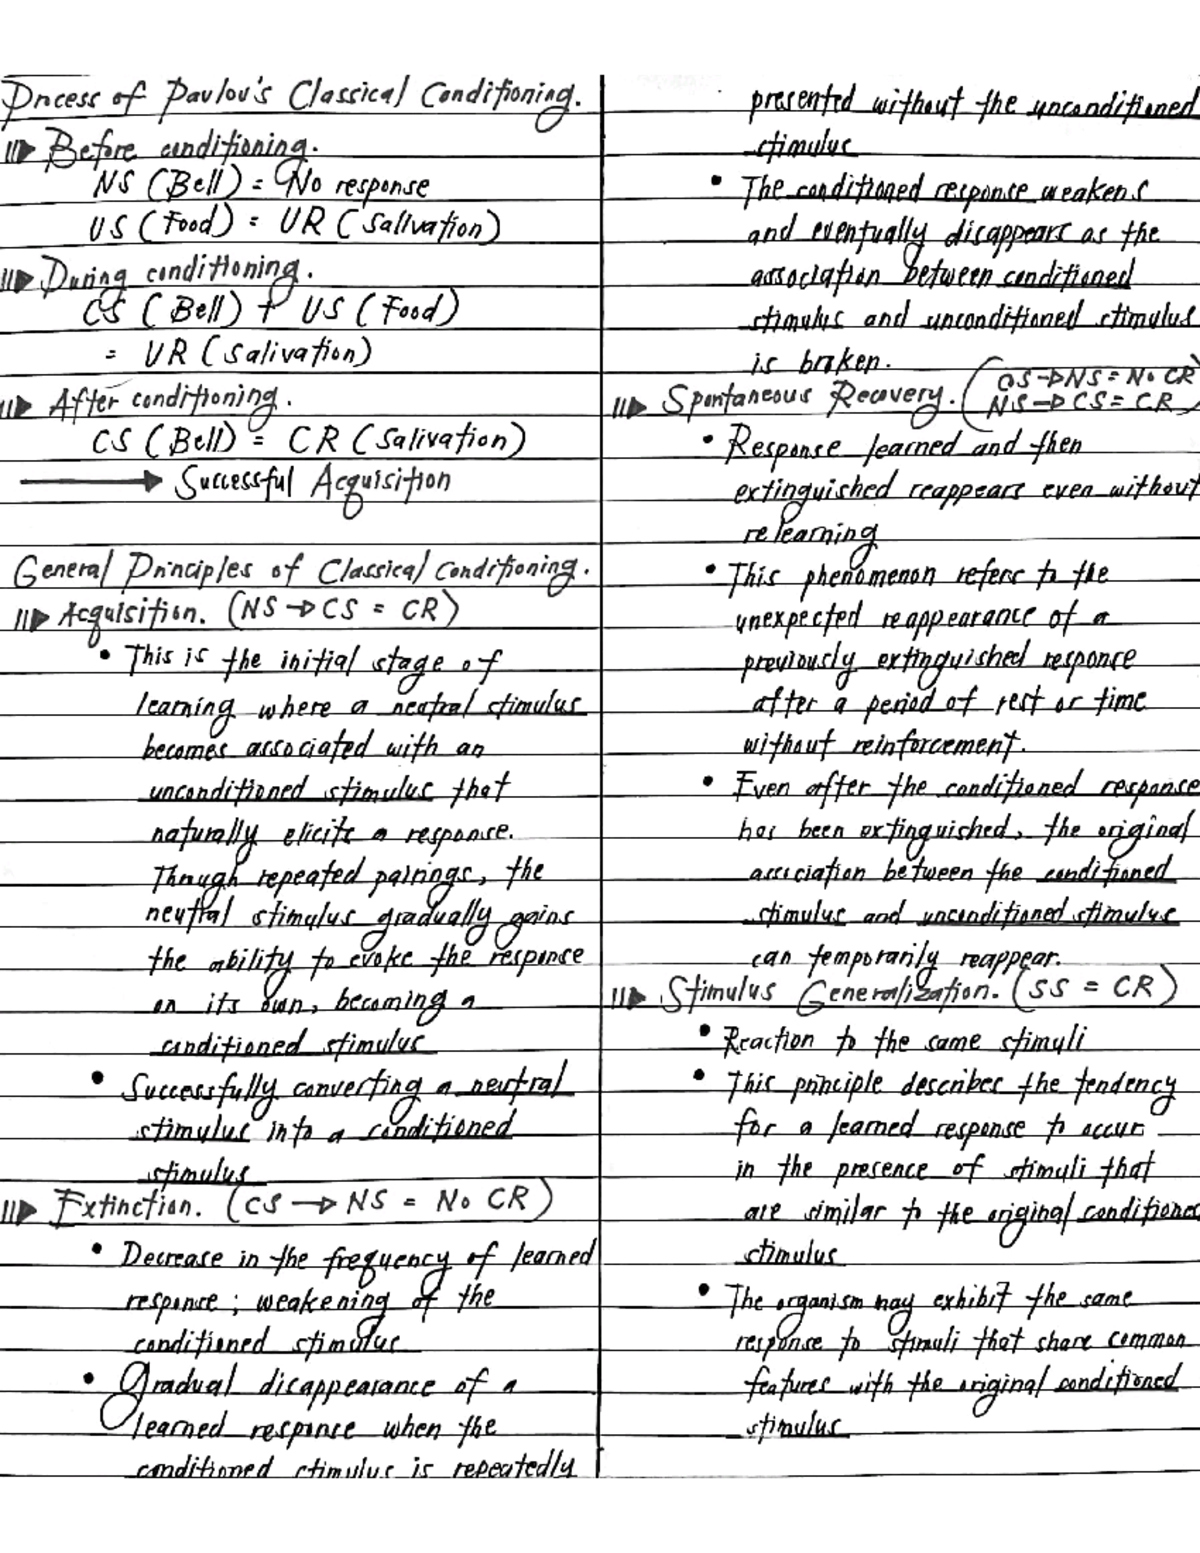 Process of Pavlov's Classical Conditioning.
Before conditioning.
NS (Bell) = No response
US (Food) = UR (Salivation)
During conditioning.
CS (Bell) + US (Food)
= UR (Salivation)
After conditioning.
CS (Bell) = CR (Salivation)
→ Successful Acquisition
General Principles of Classical Conditioning.
Acquisition. (NS → CS = CR)
• This is the initial stage of
learning where a neutral stimulus
becomes associated with an
unconditioned stimulus that
naturally elicits a response.
Through repeated pairings, the
neutral stimulus gradually gains
the ability to evoke the response
on its own, becoming a
conditioned stimulus
• Successfully converting a neutral
stimulus into a conditioned
stimulus
Extinction. (CS → NS = No CR)
• Decrease in the frequency of learned
response; weakening of the
conditioned stimulus
• Gradual disappearance of a
learned response when the
conditioned stimulus is repeatedly
presented without the unconditioned
stimulus
• The conditioned response weakens
and eventually disappears as the
association between conditioned
stimulus and unconditioned stimulus
is broken.
Spontaneous Recovery. (CS → NS = No CR
NS → CS = CR)
• Response learned and then
extinguished reappears even without
relearning
• This phenomenon refers to the
unexpected reappearance of a
previously extinguished response
after a period of rest or time
without reinforcement.
• Even after the conditioned response
has been extinguished, the original
association between the conditioned
stimulus and unconditioned stimulus
can temporarily reappear.
Stimulus Generalization. (SS = CR)
• Reaction to the same stimuli
• This principle describes the tendency
for a learned response to occur
in the presence of stimuli that
are similar to the original conditioned
stimulus
• The organism may exhibit the same
response to stimuli that share common
features with the original conditioned
stimulus